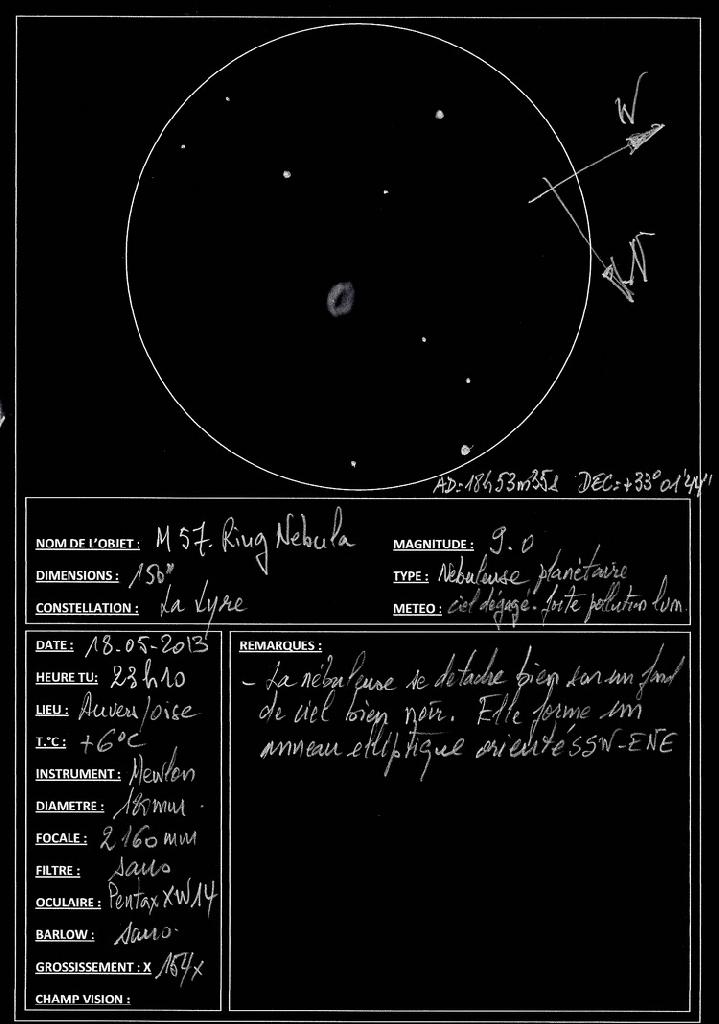 W
N
AD=18h53m35s DEC:+33°01'44"
NOM DE L'OBJET : M 57. Ring Nebula
MAGNITUDE : 9.0
DIMENSIONS : 150"
TYPE : Nébuleuse planétaire
CONSTELLATION : La Lyre
METEO : ciel dégagé. forte pollution lum.
DATE : 18.05-2013
HEURE TU: 23h10
LIEU : Auvers/oise
T.°C : +6°C
INSTRUMENT : Mewlon
DIAMETRE : 180mm.
FOCALE : 2160mm
FILTRE : sans
OCULAIRE : Pentax XW14
BARLOW : sans.
GROSSISSEMENT : X 154x
CHAMP VISION :
REMARQUES :
- La nébuleuse se détache bien sur un fond
de ciel bien noir. Elle forme un
anneau elliptique orienté SSW-ENE